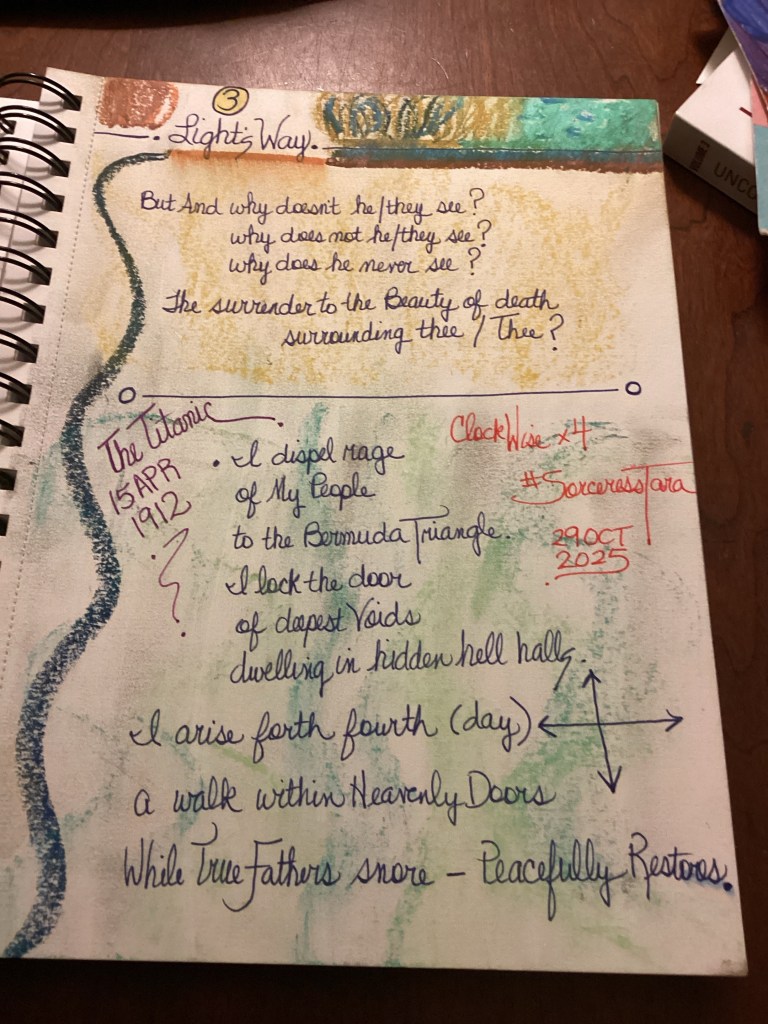 3
Light's Way.
But And why doesn't he/they see?
why does not he/they see?
why does he never see?
The surrender to the Beauty of death
surrounding thee / Thee?
The Titanic
15 APR
1912
ClockWise x4
#SorceressTara
29 OCT
2025
. I dispel rage
of My People
to the Bermuda Triangle.
I lock the door
of deepest Voids
dwelling in hidden hell halls.
I arise forth fourth (day)
a walk within Heavenly Doors
While True Fathers snore – Peacefully Restores.
UNCO